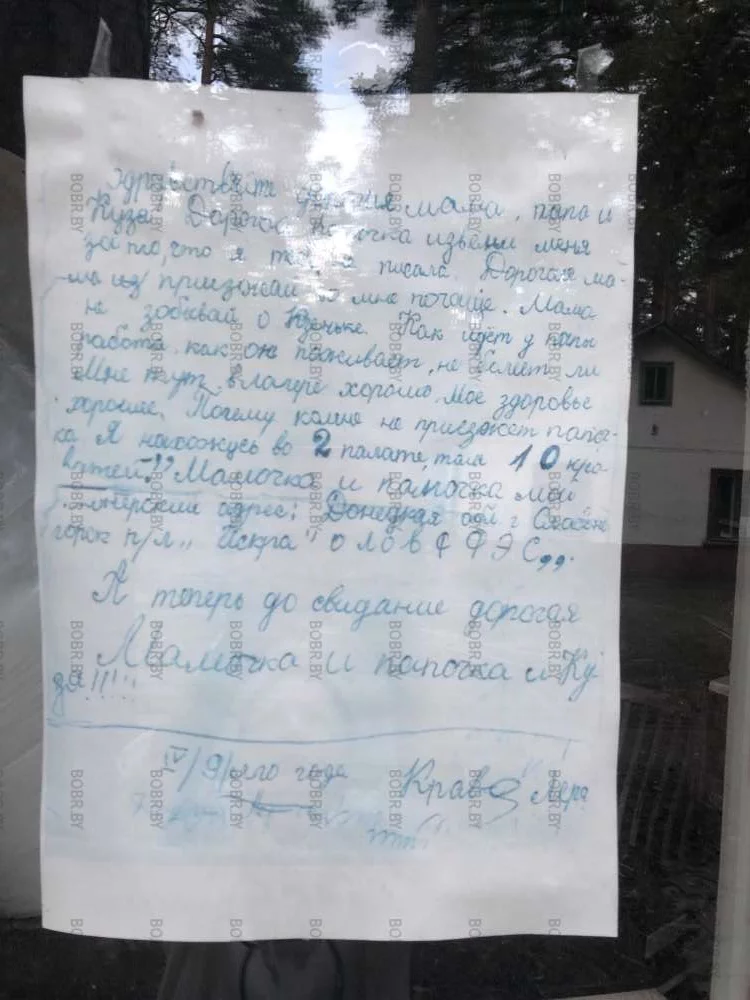 Здравствуйте дорогие мама, папа и
Кузя. Дорогая мамочка извени меня
за то, что я писала. Дорогая ма-
ма приезжай ко мне почаще. Мама
не забывай о Кузеньке. Как идёт у папы
работа, как он поживает, не болеет ли
Мне тут в лагере хорошо. Мое здоровье
хорошее. Почему комне не приезжает папоч-
ка Я нахожусь во 2 палате, там 10 кро
ватей!! Мамочка и папочка мой
адрес: Донецкая обл. г.
горск п/л „ Искра "
А теперь до свидание дорогая
Мамочка и папочка и Ку
зя!!!!!
IV/9 года Крав Лера
BOBR.BY